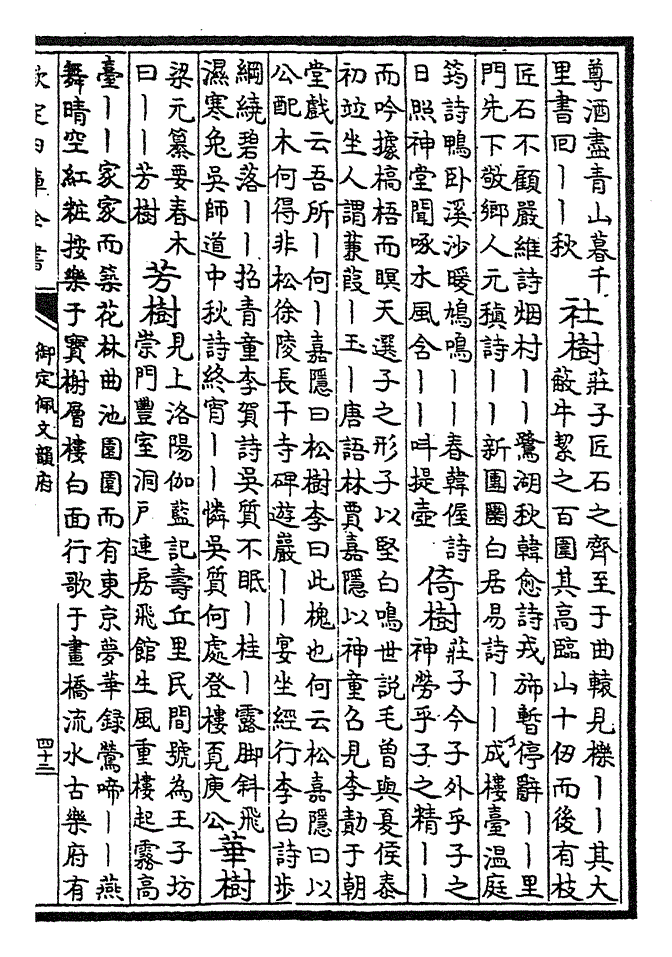 尊酒盡青山暮千
里書回丨丨秋
社樹
莊子匠石之齊至于曲轅見櫟丨丨其大
蔽牛絜之百圍其高臨山十仞而後有枝
匠石不顧嚴維詩烟村丨丨鷺湖秋韓愈詩戎斾暫停辭丨丨里
門先下敬鄉人元稹詩丨丨新團圞白居易詩丨丨成樓臺溫庭
筠詩鴨卧溪沙暖鳩鳴丨丨春韓偓詩
日照神堂聞啄木風含丨丨呌提壺
倚樹
莊子今子外乎子之
神勞乎子之精丨丨
而吟據槁梧而瞑天選子之形子以堅白鳴世説毛曽與夏侯泰
初竝坐人謂蒹葭丨玉丨唐語林賈嘉隱以神童召見李勣于朝
堂戲云吾所丨何丨嘉隱曰松樹李曰此槐也何云松嘉隱曰以
公配木何得非松徐陵長干寺碑遊巖丨丨宴坐經行李白詩步
綱繞碧落丨丨招青童李賀詩吳質不眠丨桂丨露脚斜飛
濕寒兔吳師道中秋詩終宵丨丨憐吳質何處登樓覓庾公
華樹
梁元纂要春木
曰丨丨芳樹
芳樹
見上洛陽伽藍記壽丘里民間號為王子坊
崇門豐室洞戶連房飛館生風重樓起霧高
臺丨丨家家而築花林曲池園園而有東京夢華録鶯啼丨丨燕
舞晴空紅粧按樂于寳榭層樓白面行歌于畫橋流水古樂府有
欽定四庫全書
御定佩文韻府
四十三